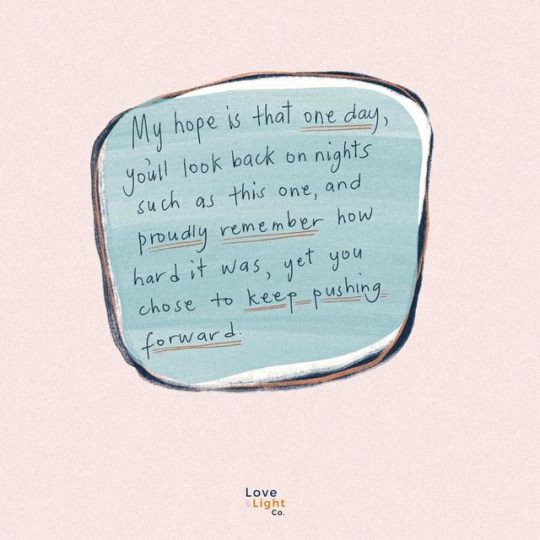 My hope is that one day,
you'll look back on nights
such as this one, and
proudly remember how
hard it was, yet you
chose to keep pushing
forward.
Love
&Light
Co.